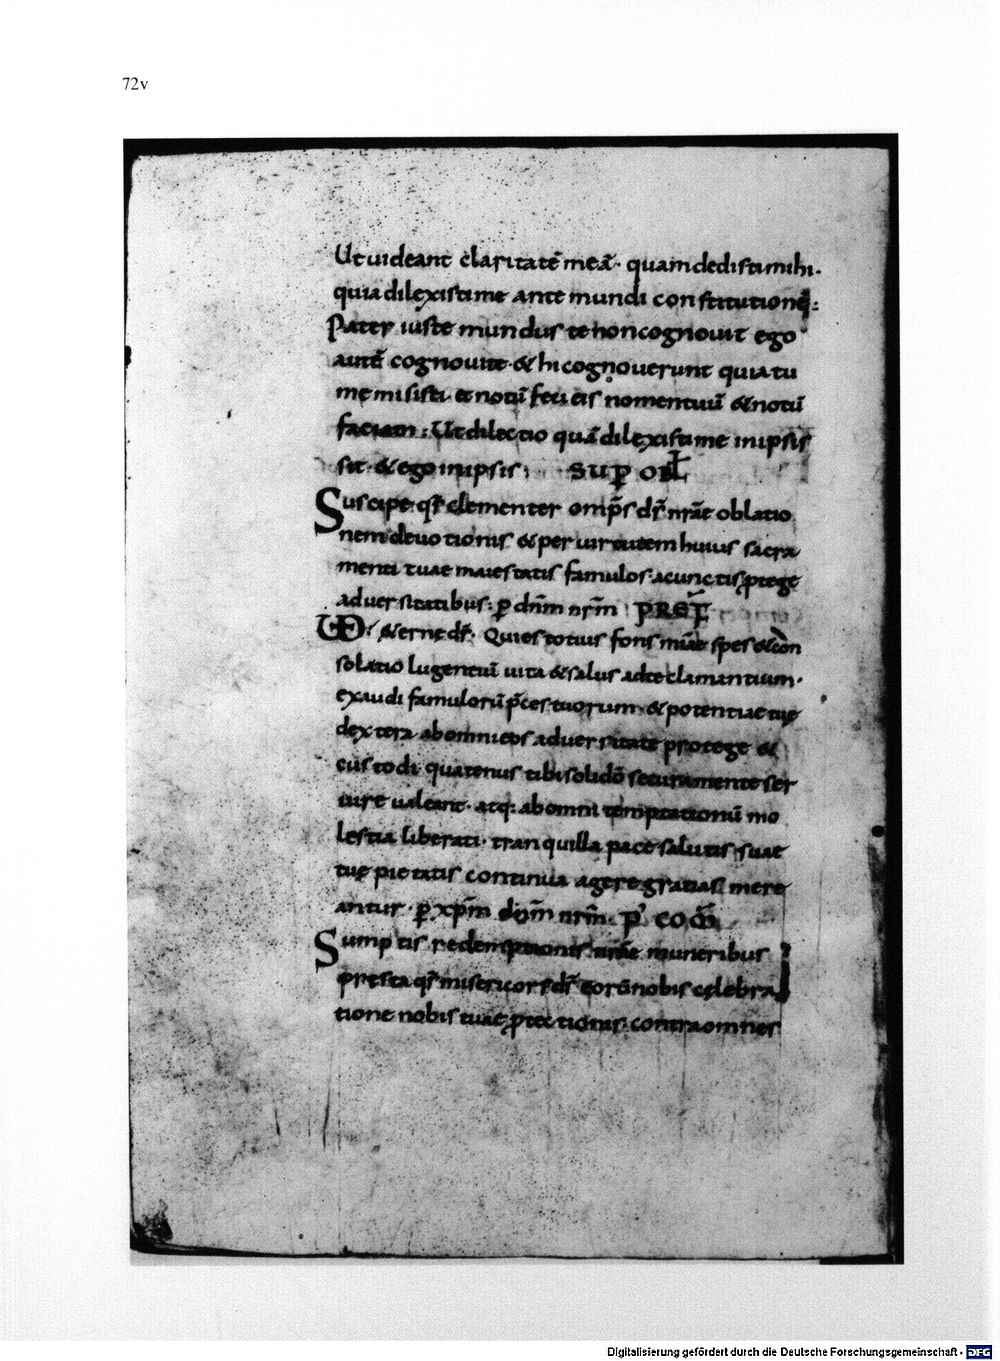 72v
Ut uideant claritatē meā· quam dedisti mihi·
quia dilexisti me ante mundi constitutionē:
Pater iuste mundus te non cognouit ego
autē cognoui te· & hi cognouerunt quia tu
me misisti· et notū feci eis nomen tuū & notū
faciam: Ut dilectio quā dilexisti me in ipsis
sit· & ego in ipsis; SUP̱ OBL̄
Suscipe qs̄ clementer omp̄s ds̄ nrāe oblatio
nem deuotionis & per uirtutem huius sacra
menti tuae maiestatis famulos a cunctis ꝓtege
aduersitatibus: ꝑ dnm̄ nrm̄; PREF̄
UD: &erne ds̄· Quies totius fons spes & con
solatio lugentiū uita & salus ad te clamantium·
exaudi famulorū p̄ces tuorum· & potentiae tuę
dextera ab omni eos aduersitate protege &
custodi quatenus tibi solidō secura mente ser
uire ualeant· atq: ab omni temptationū mo
lestia liberati· tranquilla pace salutis suae
tuę pietatis continua agere gratias mere
antur· ꝑ xp̄m dnm̄ nrm̄· P' COM̄
Sumptis redemptionis nrāe muneribus
presta qs̄ misericors ds̄ eorū nobis celebra
tione nobis tuae ꝓtectionis contra omnes
Digitalisierung gefördert durch die Deutsche Forschungsgemeinschaft - DFG